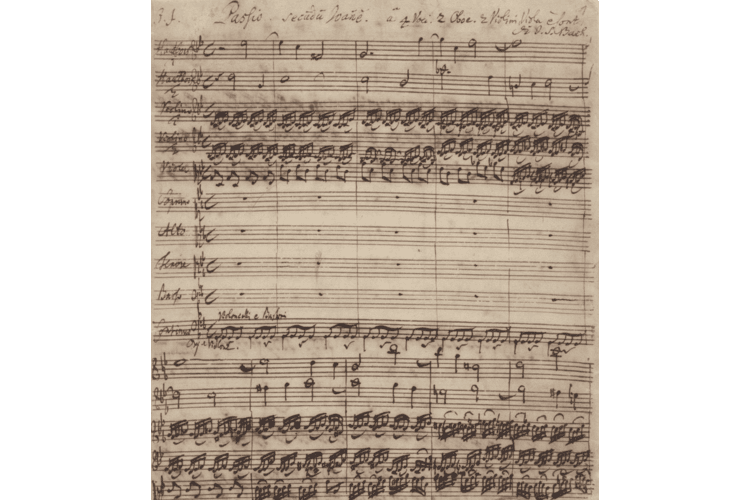 J. J. Passio secundũ Joañẽ. à 4 Voci. 2 Oboe. 2 Violini Viola è Cont.
di J. S. Bach
Hautbois
Hautbois
Violino
Violino
Viola
Soprano
Alto
Tenore
Basso
Violoncelli e Bassoni
Continuo
Org e Violone.